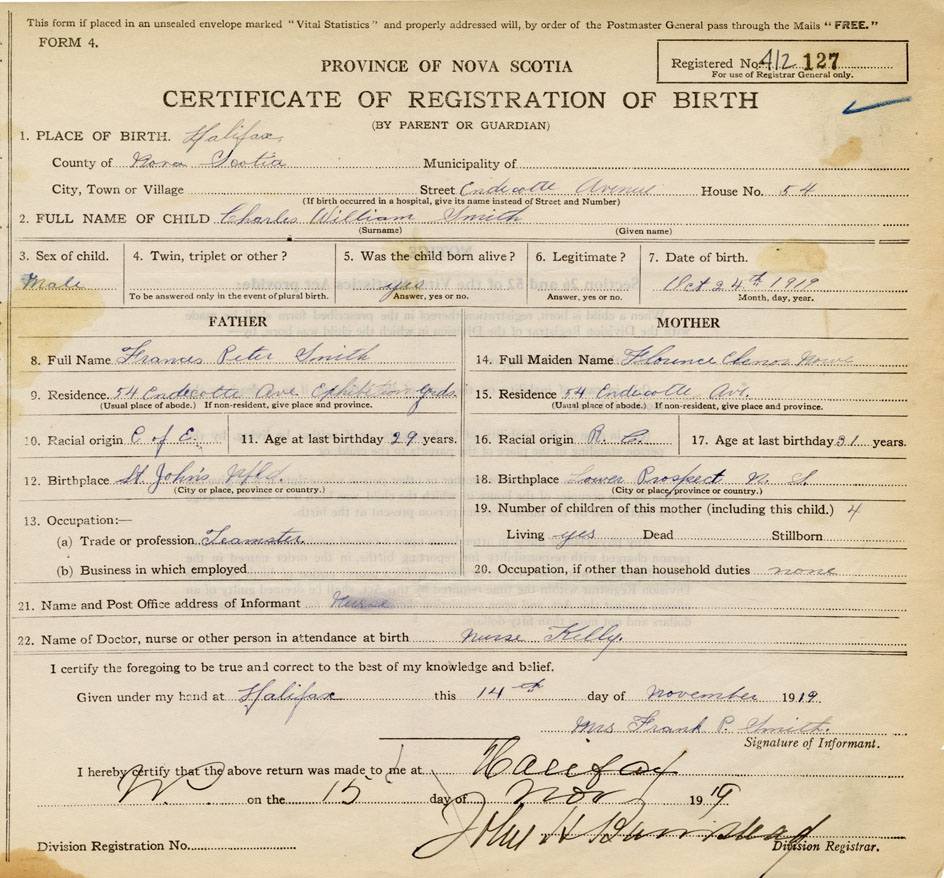 This form if placed in an unsealed envelope marked "Vital Statistics" and properly addressed will, by order of the Postmaster General pass through the Mails "FREE."
FORM 4.
Registered No. 412 127
For use of Registrar General only.
PROVINCE OF NOVA SCOTIA
CERTIFICATE OF REGISTRATION OF BIRTH
(BY PARENT OR GUARDIAN)
1. PLACE OF BIRTH. Halifax
County of Nova Scotia Municipality of
City, Town or Village Street Endicotte Avenue House No. 54
(If birth occurred in a hospital, give its name instead of Street and Number)
2. FULL NAME OF CHILD Charles William Smith
(Surname) (Given name)
3. Sex of child. 4. Twin, triplet or other? 5. Was the child born alive? 6. Legitimate? 7. Date of birth.
Male yes Oct 24th 1919
To be answered only in the event of plural birth. Answer, yes or no. Answer, yes or no. Month, day, year.
FATHER
8. Full Name Frances Peter Smith
9. Residence. 54 Endicotte Ave Exhibition Grds
(Usual place of abode.) If non-resident, give place and province.
10. Racial origin C of E. 11. Age at last birthday 29 years.
12. Birthplace St John's Nfld.
(City or place, province or country.)
13. Occupation:—
(a) Trade or profession Teamster
(b) Business in which employed
MOTHER
14. Full Maiden Name Florence
15. Residence 54 Endicotte Av.
(Usual place of abode.) If non-resident, give place and province.
16. Racial origin R. C. 17. Age at last birthday 31 years.
18. Birthplace Lower Prospect N. S.
(City or place, province or country.)
19. Number of children of this mother (including this child.) 4
Living yes Dead Stillborn
20. Occupation, if other than household duties none
21. Name and Post Office address of Informant Nurse
22. Name of Doctor, nurse or other person in attendance at birth Nurse Kelly.
I certify the foregoing to be true and correct to the best of my knowledge and belief.
Given under my hand at Halifax this 14th day of November 1919
Mrs Frank P. Smith.
Signature of Informant.
I hereby certify that the above return was made to me at Halifax
on the 15 day of Nov 1919
John H
Division Registration No. Division Registrar.